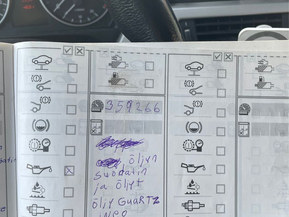 359266
öljyn
suodatin
ja öljyt
öljy GuaRTZ